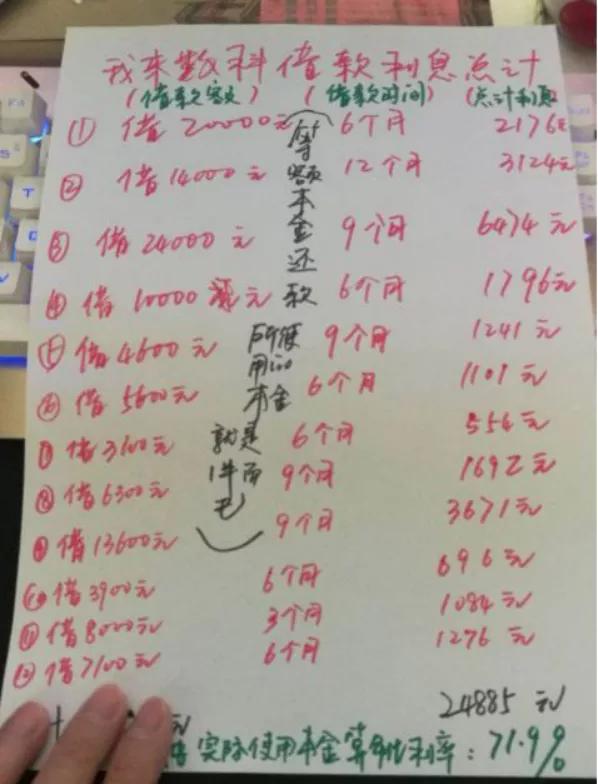 我来数科借款利息总计
(借款客户) (借款时间) (总计利息)
① 借20000元 6个月 2176元
② 借14000元 12个月 3124元
③ 借24000元 9个月 6474元
④ 借10000元 6个月 1796元
⑤ 借4600元 9个月 1241元
⑥ 借5600元 6个月 1101元
⑦ 借3100元 6个月 554元
⑧ 借6300元 9个月 1692元
⑨ 借13600元 9个月 3671元
⑩ 借3900元 6个月 696元
⑪ 借8000元 3个月 1084元
⑫ 借7100元 6个月 1276元
(等额本金还款
所使用的本金
就是1半而已)
24885元
实际使用本金算年化利率:71.9%